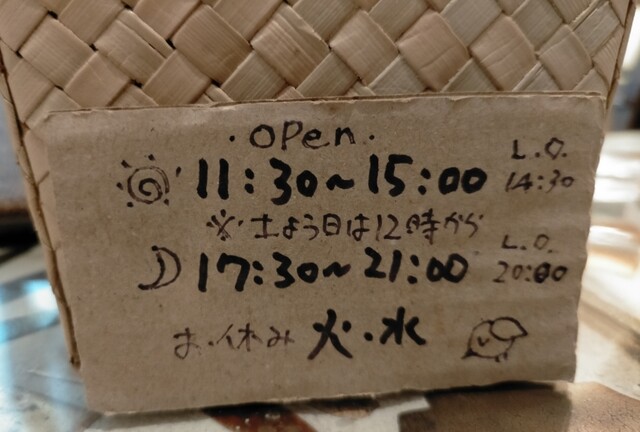 ・OPEN・
11:30~15:00 L.O. 14:30
※土よう日は12時から
17:30~21:00 L.O. 20:00
お休み 火・水